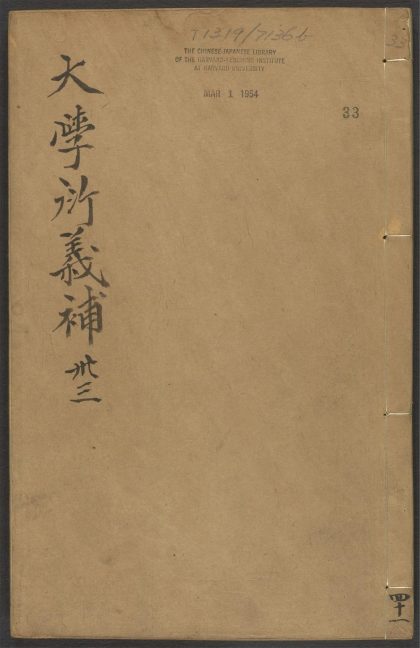 T1319/7136b
33
THE CHINESE-JAPANESE LIBRARY
OF THE HARVARD-YENCHING INSTITUTE
AT HARVARD UNIVERSITY
MAR 1 1954
33
大學衍義補
卅三
四十一